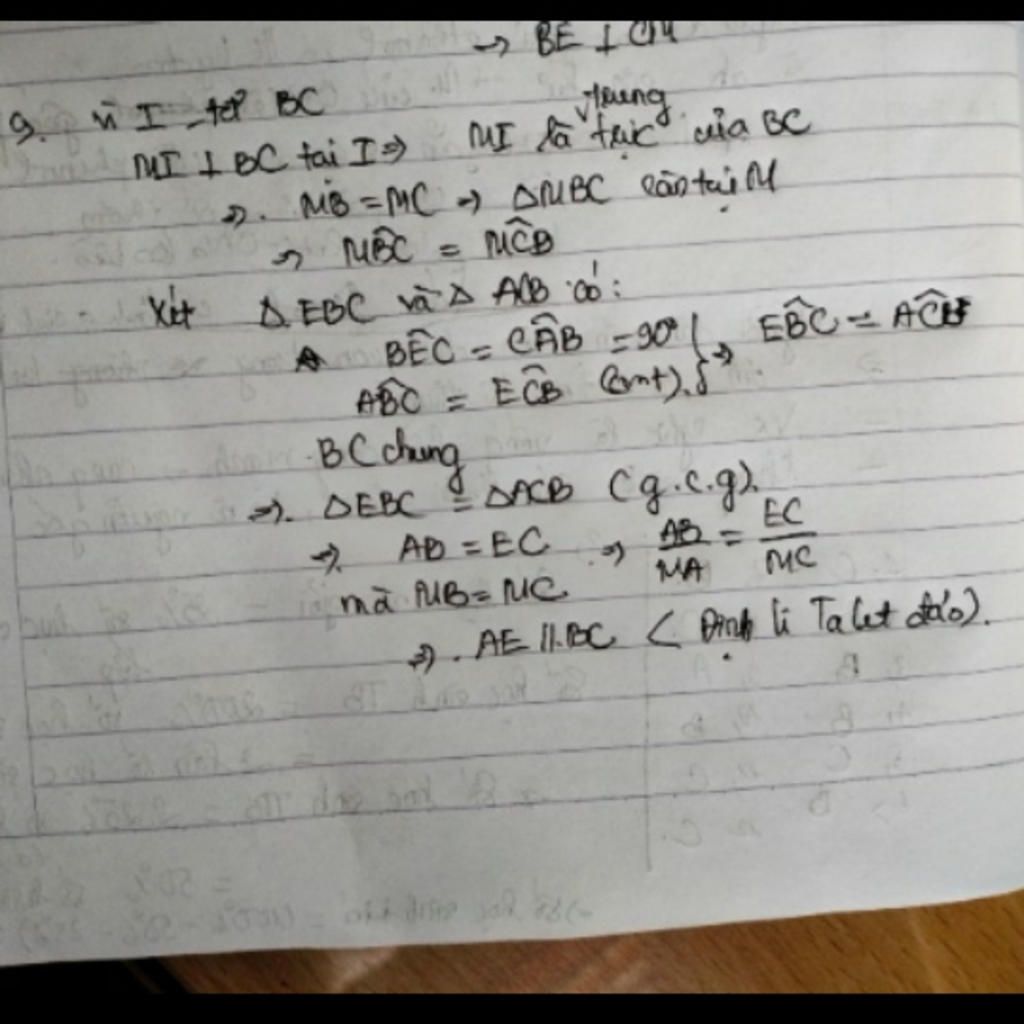 → BE ⊥ CM
g. vì I tđ BC
MI ⊥ BC tại I ⇒ MI là trung trực của BC
⇒. MB = MC ⇒ ΔMBC cân tại M
⇒ MB̂C = MĈB
Xét Δ EBC và Δ ACB có:
BÊC = CÂB = 90° } ⇒ EB̂C = AĈB
AB̂C = EĈB (cmt).
BC chung
⇒. ΔEBC = ΔACB (g.c.g).
⇒. AB = EC ⇒ AB/MA = EC/MC
mà MB = MC
⇒. AE // BC ( Định lí Talet đảo).